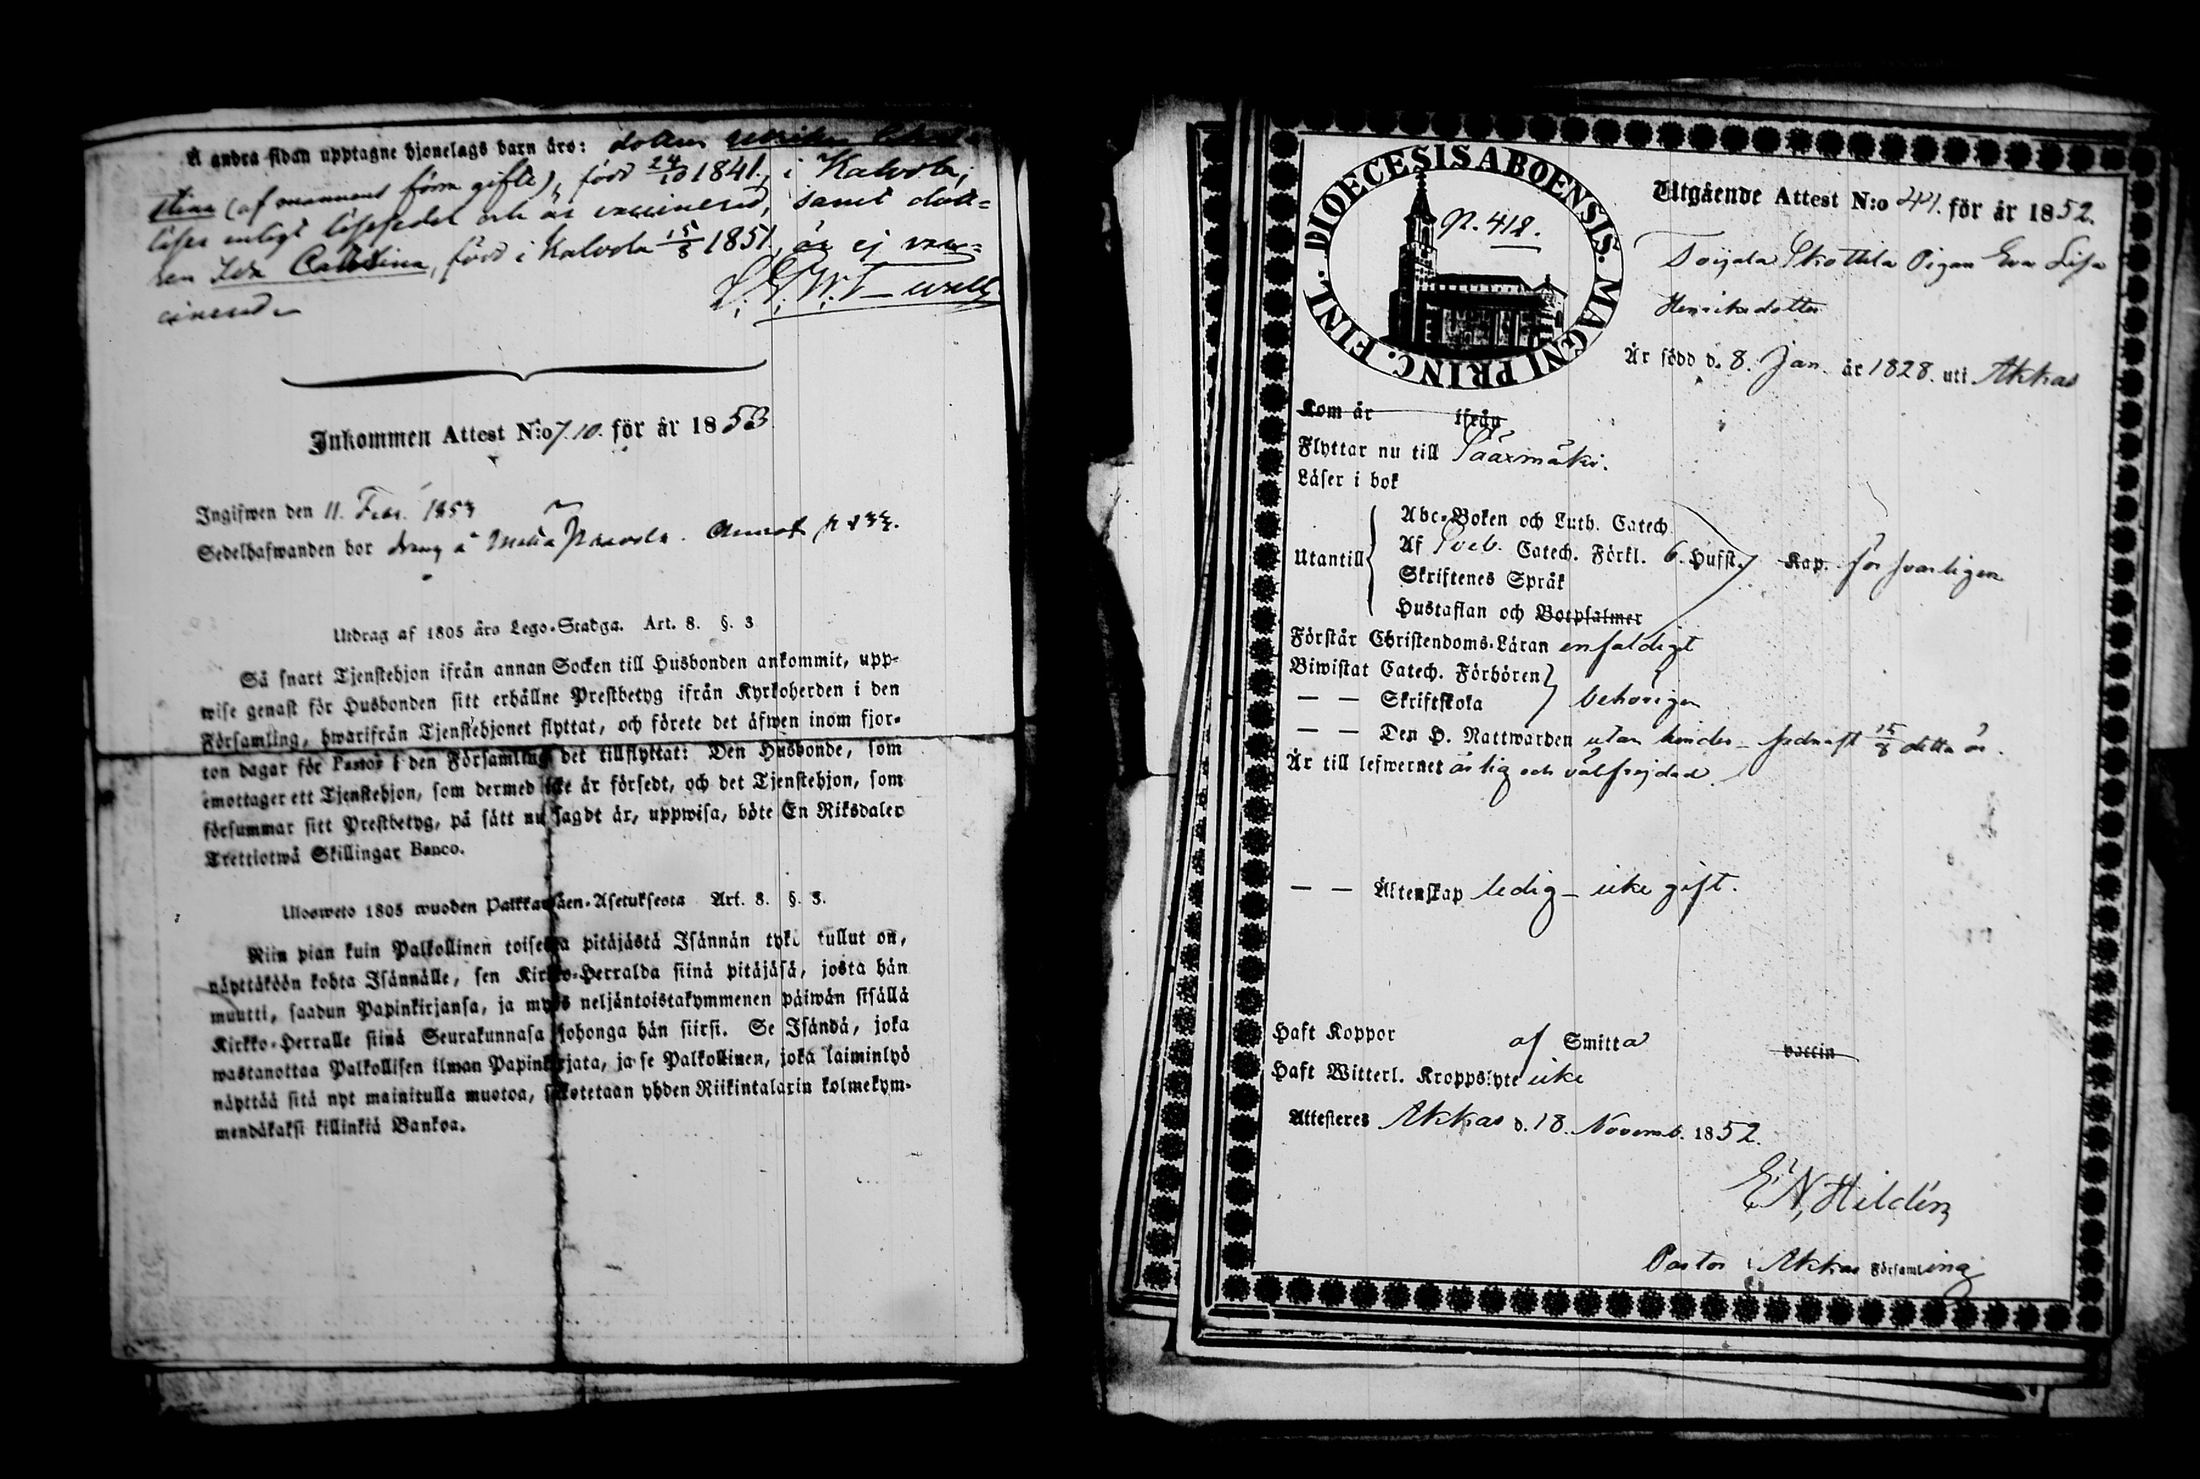 Å andra sidan upptagne hjonelags barn äro: dottern
stina (af mannens förra gifte), född 24/10 1841, i Kalvola,
läser enligt läsesedel och är vaccinerad, samt dott-
ren Ida Carolina, född i Kalvola 15/8 1851, är ej vac-
cinerad.
Inkommen Attest N:o 710. för år 1853
Ingifwen den 11. Febr. 1853
Sedelhafwanden bor dräng å
Utdrag af 1805 års Lego-Stadga. Art. 8. §. 3
Så snart Tjenstehjon ifrån annan Socken till Husbonden ankommit, upp-
wise genast för Husbonden sitt erhållne Prestbetyg ifrån Kyrkoherden i den
Församling, hwarifrån Tjenstehjonet flyttat, och förete det äfwen inom fjor-
ton dagar för Pastor i den Församling det tillflyttat: Den Husbonde, som
emottager ett Tjenstehjon, som dermed icke är försedt, och det Tjenstehjon, som
försummar sitt Prestbetyg, på sätt nu sagdt är, uppwisa, böte En Riksdaler
Trettiotwå Skillingar Banco.
Ulosweto 1805 wuoden Palkkawäen-Asetuksesta Art. 8. §. 3.
Niin pian kuin Palkollinen toisesta pitäjästä Isännän tykö tullut on,
näyttäköön kohta Isännälle, sen Kirkko-Herralda siinä pitäjäsä, josta hän
muutti, saadun Papinkirjansa, ja myös neljäntoistakymmenen päiwän sisällä
Kirkko-Herralle siinä Seurakunnasa johonga hän siirsi. Se Isändä, joka
wastanottaa Palkollisen ilman Papinkirjata, ja se Palkollinen, joka laiminlyö
näyttää sitä nyt mainitulla muotoa, sakotetaan yhden Riikintalarin kolmekym-
mendäkaksi killinkiä Bankoa.
DIOECESIS ABOENSIS. MAGNI PRINC. FINL.
N. 418.
Utgående Attest N:o 44. för år 1852.
Toijala Skottila Pigan Eva Lisa
Henriksdotter
Är född d. 8. Jan. år 1828. uti Akkas
Kom år ifrån
Flyttar nu till Sääxmäki.
Läser i bok
Utantill
Abc-Boken och Luth. Catech
Af Sveb. Catech. Förkl. 6. Hufst. Kap. försvarligen
Skriftenes Språk
Hustaflan och Botpsalmer
Förstår Christendoms-Läran enfaldigt
Biwistat Catech. Förhören
— — Skriftskola behörigen
— — Den H. Nattwarden utan hinder – sednast 15/8 detta år.
Är till lefwernet ärlig och välfrejdad.
— — Äktenskap ledig – icke gift.
Haft Koppor af Smitta vaccin
Haft Witterl. Kroppslyte icke
Attesteres Akkas d. 18. Novemb. 1852.
E. N. Hildén
Pastor i Akkas Församling